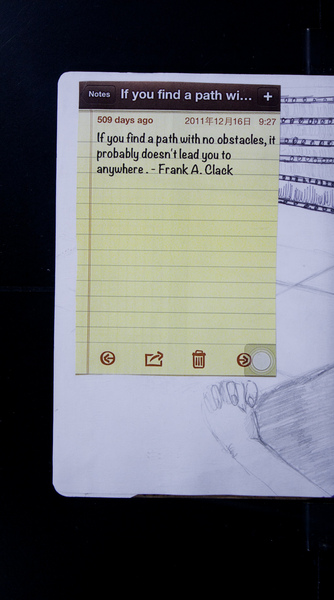 Notes
If you find a path wi...
+
509 days ago
2011年12月16日 9:27
If you find a path with no obstacles, it
probably doesn't lead you to
anywhere . - Frank A. Clack